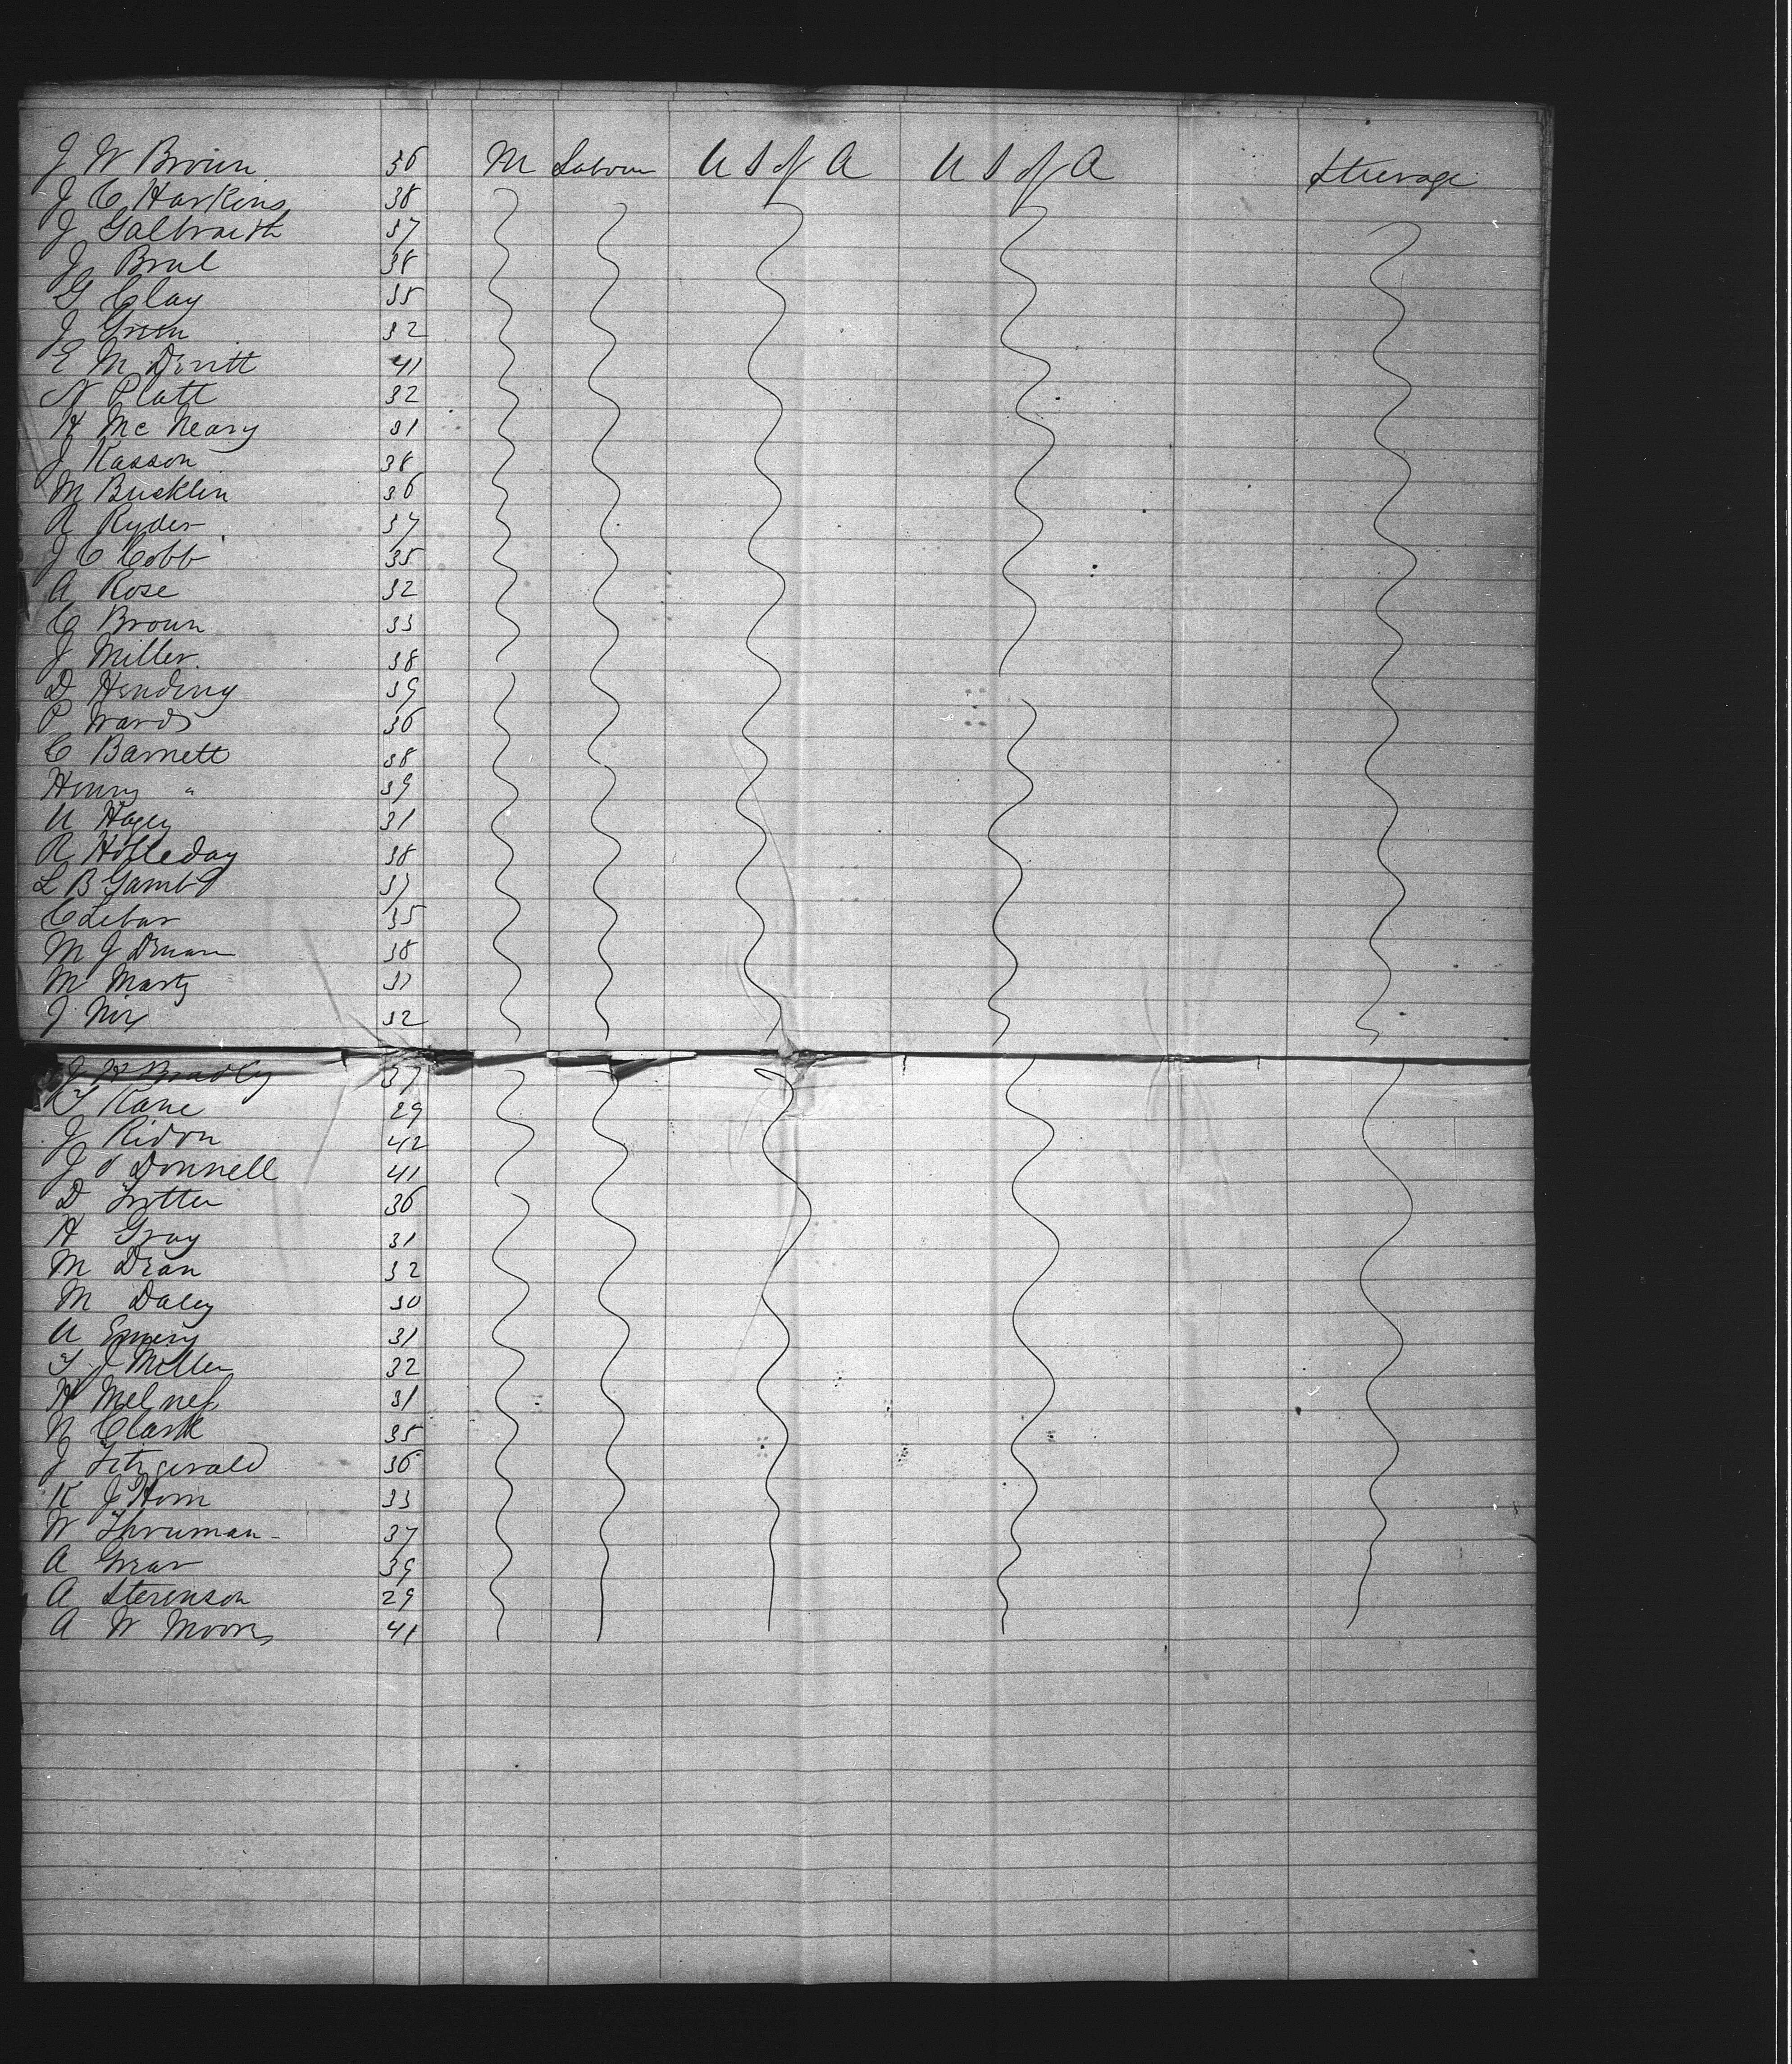 J W Brown 36 M Labour U S of A U S of A Steerage
J C Harkins 38
J Galbraith 37
J Brul 38
G Clay 35
J Green 32
E M Devitt 41
N Platt 32
H Mc Neary 31
J Kasson 38
M Bucklin 36
R Ryder 37
J C Cobb 35
A Rose 32
C Brown 33
J Miller 38
D Hendery 39
P Wards 36
C Barnett 38
Henry " 39
U Hagey 31
R Holleday 38
L B Gamble 37
C Lebar 35
M J 38
M Marty 37
J Nix 32
J H Bradly 37
Kane 29
J Ridon 42
J O Donnell 41
D Trotter 36
H Gray 31
M Dean 32
M Daley 30
U Emery 31
T J Miller 32
H 31
N Clark 35
J Fitzgerald 36
K J Horn 33
W Thruman 37
A Grear 39
A Stevenson 29
A W Moores 41